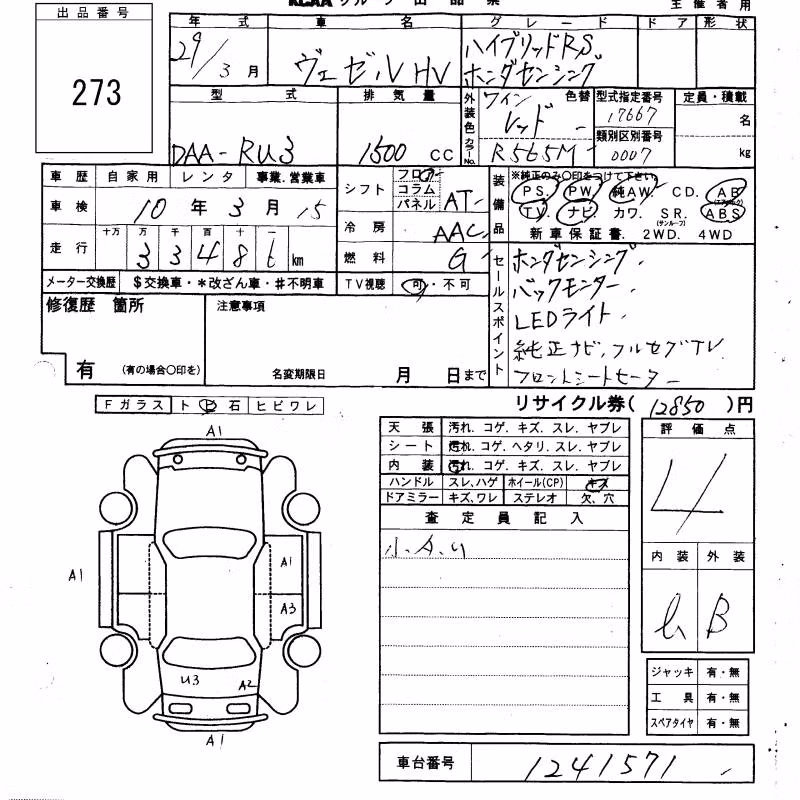 KCAA グループ出品票
主催者用
出品番号
273
年式 車名 グレード ドア 形状
29/3月 ヴェゼル HV ハイブリッドRS
ホンダセンシング
型式 排気量 外装色 色替 型式指定番号 定員・積載
ワインレッド 17667 名
カラーNo. 類別区別番号
DAA-RU3 1500 CC R565M 0007 kg
車歴 自家用 レンタ 事業.営業車
車検 10年3月15
走行 十万 万 千 百 十 一
33486 km
メーター交換歴 $交換車・*改ざん車・#不明車
シフト フロア コラム パネル AT
冷房 AAC
燃料 G
TV視聴 可・不可
装備品 ※純正のみ〇印をつけて下さい。
PS. PW. 純AW. CD. AB(エアバック)
TV. ナビ. カワ. SR.(サンルーフ) ABS
新車保証書. 2WD. 4WD
セールスポイント
ホンダセンシング.
バックモンター.
LEDライト.
純正ナビ.フルセグTV
フロントシートヒーター
修復歴 箇所
有 (有の場合〇印を)
注意事項
名変期限日 月 日まで
リサイクル券(12850)円
Fガラス ト ビ 石 ヒビワレ
A1
A1
A1
A3
U3
A2
A1
天張 汚れ. コゲ. キズ. スレ. ヤブレ
シート 汚れ. コゲ. ヘタリ. スレ. ヤブレ
内装 汚れ. コゲ. キズ. スレ. ヤブレ
ハンドル スレ、ハゲ ホイール(CP) キズ
ドアミラー キズ、ワレ ステレオ 欠、穴
査定員記入
小.A.U
評価点
4
内装 外装
B
ジャッキ 有・無
工具 有・無
スペアタイヤ 有・無
車台番号 1241571